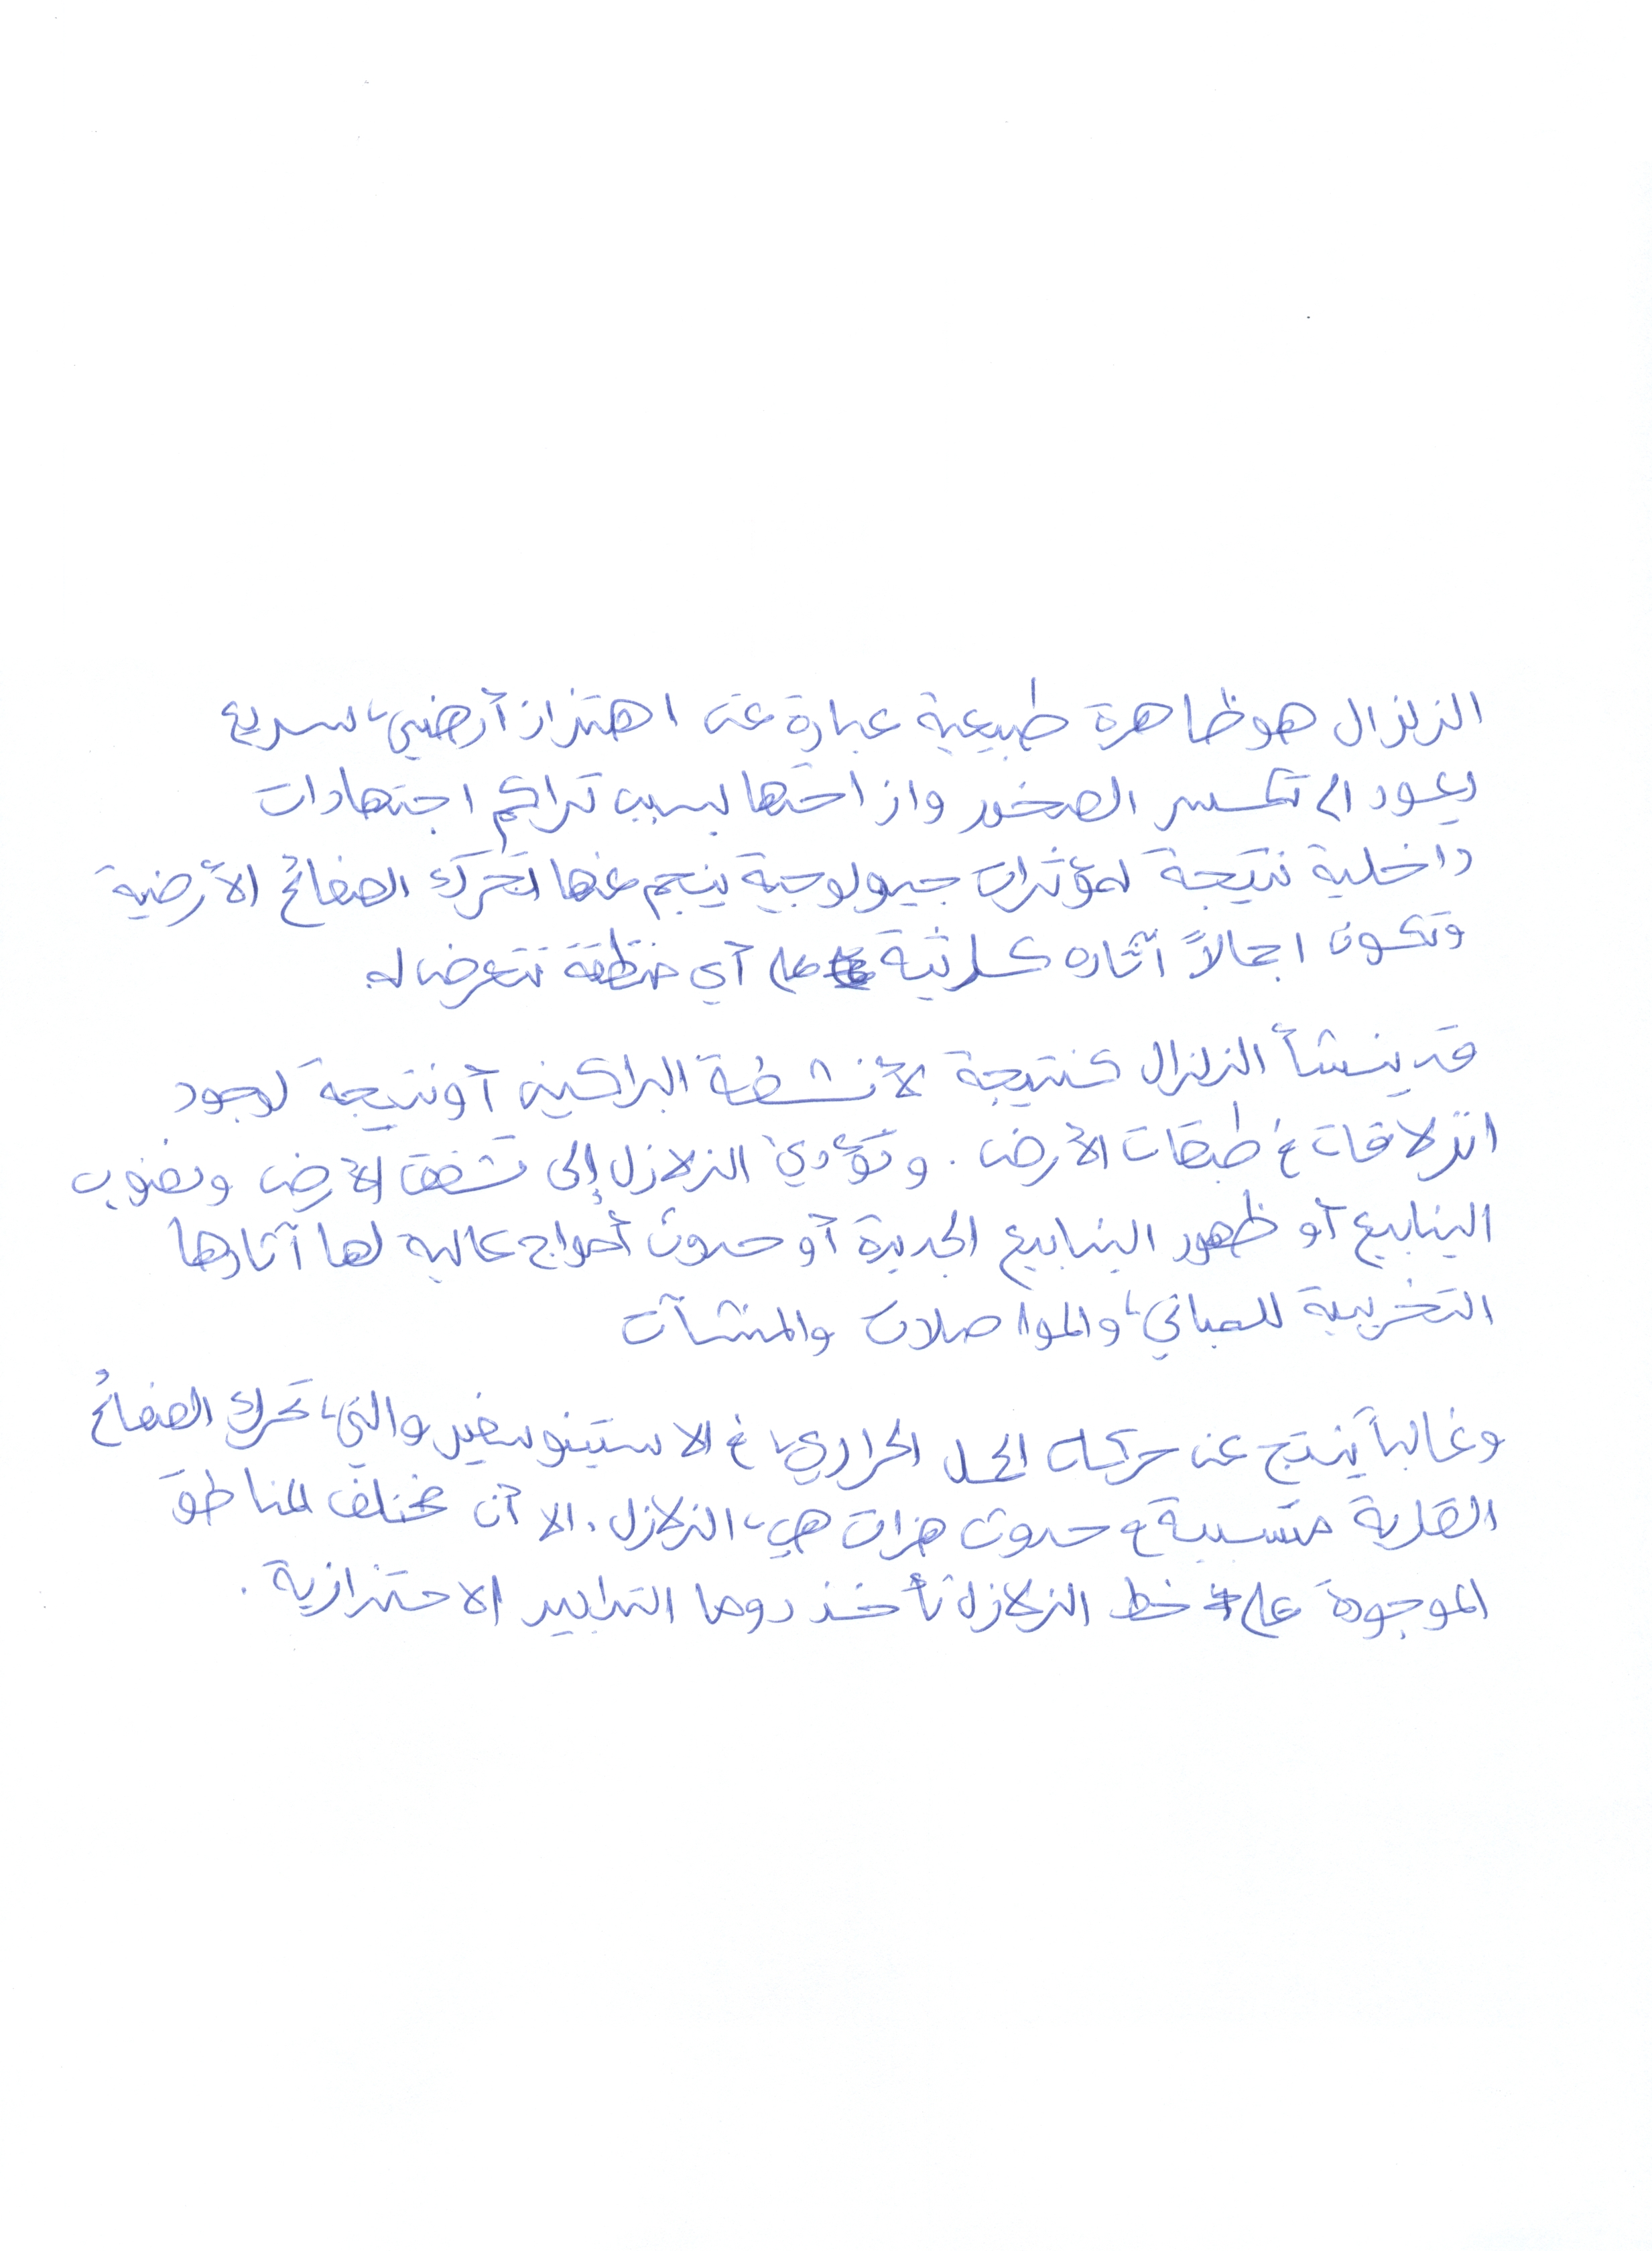 الزلزال هو ظاهرة طبيعية عبارة عن اهتزاز أرضي سريع
يعود الى تكسر الصخور وازاحتها بسبب تراكم اجتهادات
داخلية نتيجة لمؤثرات جيولوجية ينجم عنها تحرك الصفائح الأرضية
وتكون اجمالاً آثاره كارثية على أي منطقة تتعرض له
قد ينشأ الزلزال كنتيجة لأنشطة البراكين أو نتيجة لوجود
انزلاقات في طبقات الأرض. وتؤدي الزلازل إلى تشقق الأرض ونضوب
الينابيع أو ظهور الينابيع الجديدة أو حدوث أمواج عالية لها آثارها
التخريبية للمباني والمواصلات والمنشآت
وغالباً ينتج عن حركة الحمل الحراري في الاستينوسفير والتي تحرك الصفائح
القارية متسببة في حدوث هزات هي الزلازل. الا أن مختلف المناطق
الموجودة على خط الزلازل تأخذ دوما التدابير الاحترازية.